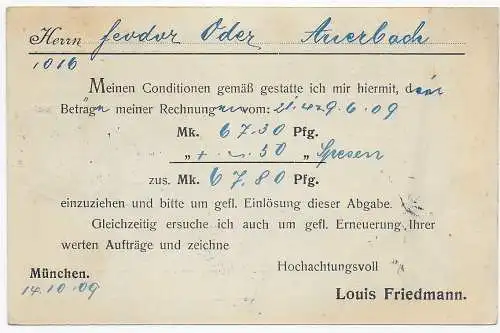 Herrn Feodor Oder Auerbach
1016
Meinen Conditionen gemäß gestatte ich mir hiermit, den
Beträgn meiner Rechnungen vom: 21.4 & 9.6.09
Mk. 67.30 Pfg.
„ + –.50 „ Spesen
zus. Mk. 67.80 Pfg.
einzuziehen und bitte um gefl. Einlösung dieser Abgabe.
Gleichzeitig ersuche ich auch um gefl. Erneuerung Ihrer
werten Aufträge und zeichne
Hochachtungsvoll
München.
14.10.09
Louis Friedmann.